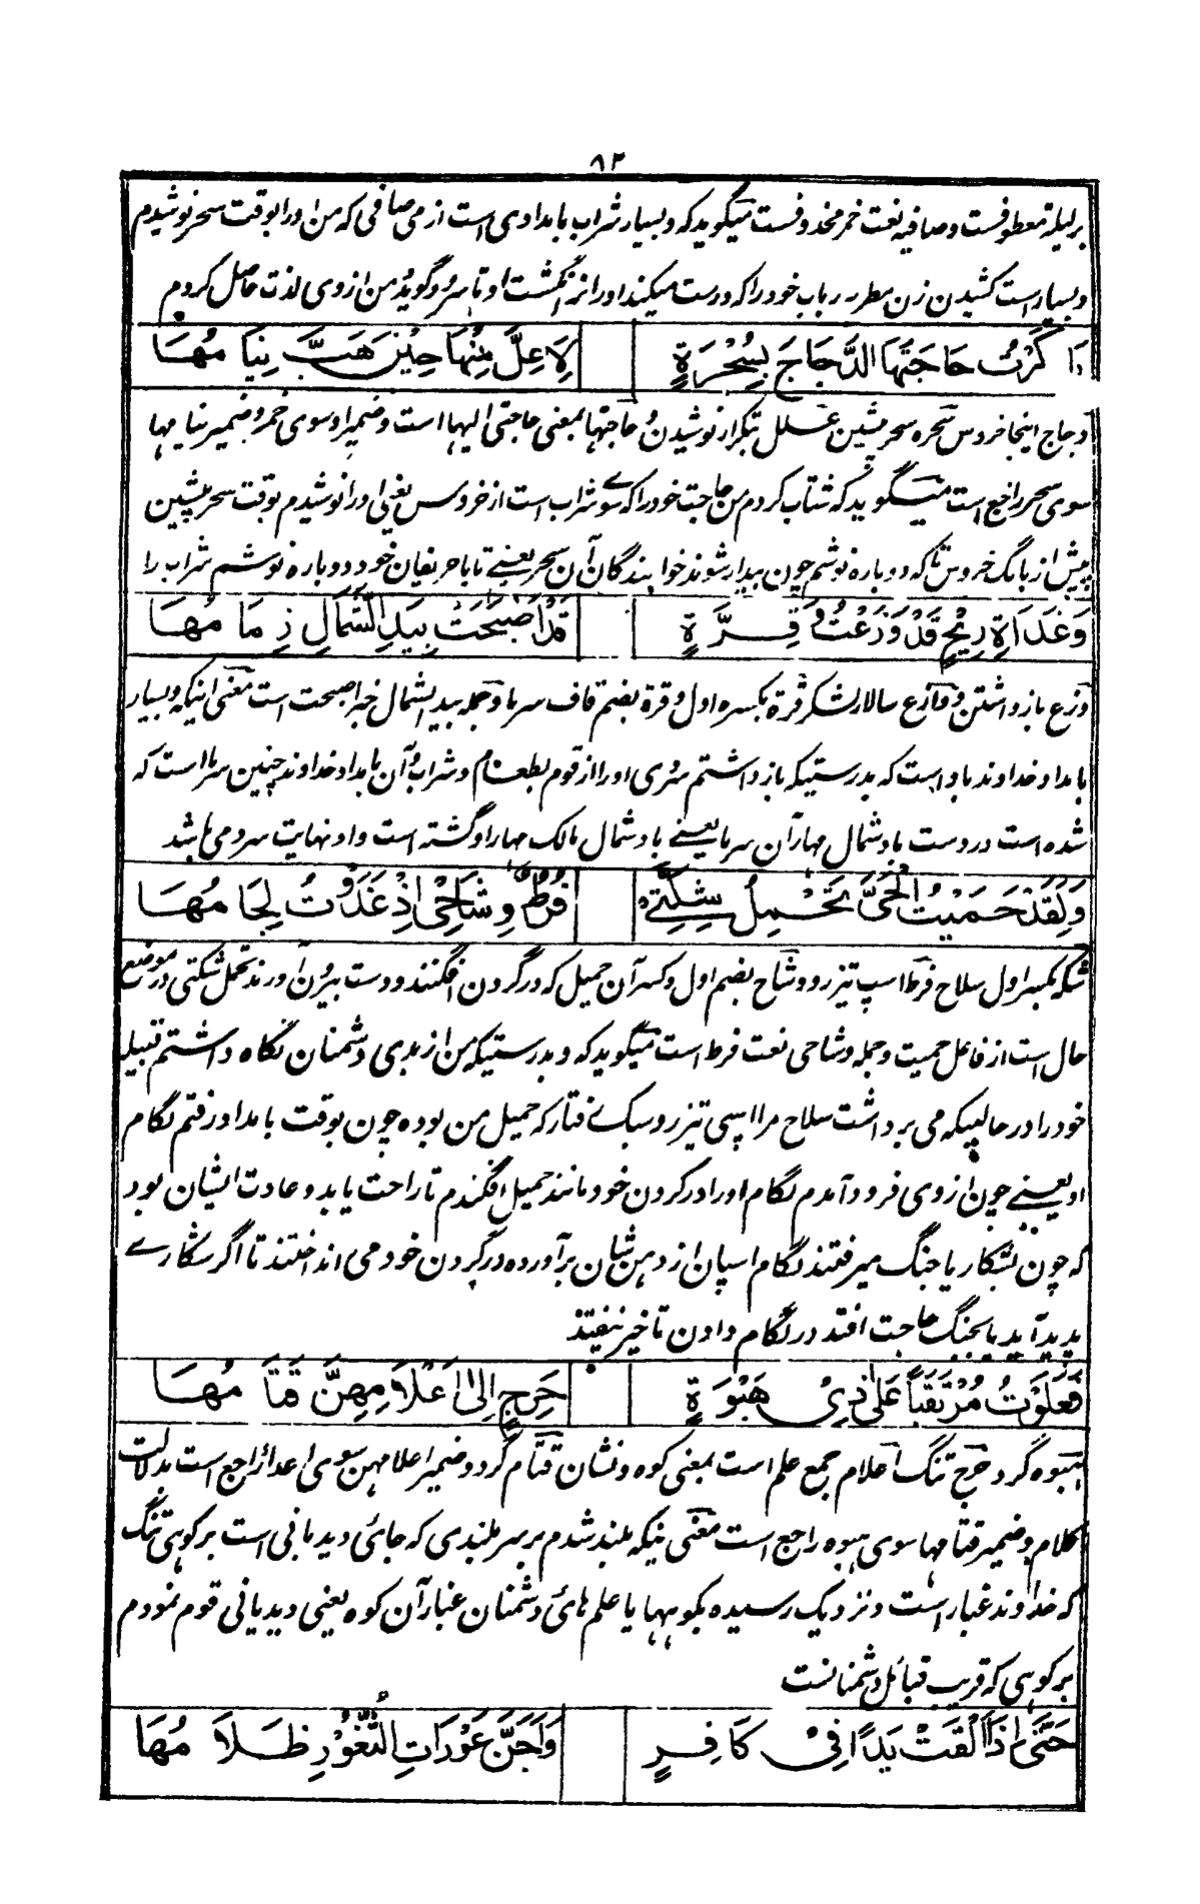 ۸۲
بر لیلة معطوفست و صافیه نعت خمر محذوفست میگوید که و بسیار شراب بامدادی است از می صافی که من او را بوقت سحر نوشیدم
و بسیار است کشیدن زن مطربه رباب خود را که درست میکند او را نر انگشت او تا سرود گوید و من ازوی لذت حاصل کردم
بَاكَرْتُ حَاجَتَهَا الدَّجَاجَ بِسُحْرَةٍ لِاُعِلَّ مِنْهَا حِيْنَ هَبَّ نِيَا مُهَا
دجاج اینجا خروس سحره سحر پیشین علل بتکرار نوشیدن و حاجتها بمعنی حاجتی الیها است و ضمیر او سوی خمر و ضمیر نیامها
سوی سحر راجع است میگوید که شتاب کردم من حاجت خود را که سوے شراب است از خروس یعنی او را نوشیدم بوقت سحر پیشین
پیش از بانگ خروس تا که دوباره نوشم چون بیدار شوند خوابندگان آن سحر یعنے تا با حریفان خود دوباره نوشم شراب را
وَغَدَاةِ رِيْحٍ قَدْ وَزَعْتُ وَقِرَّةٍ قَدْ اَصْبَحَتْ بِيَدِ الشَّمَالِ زِمَا مُهَا
وزع باز داشتن و وازع سالار لشکر قرة بکسره اول و قرة بضم قاف سرما و جمله بید الشمال خبر اصبحت است معنی اینکه و بسیار
بامداد خداوند باد است که بدرستیکه باز داشتم سردی او را از قوم بطعام و شراب و آن بامداد خداوند چنین سرما است که
شده است در دست باد شمال مهار آن سرما یعنے باد شمال مالک مهار او گشته است و او نهایت سرد می باشد
وَلَقَدْ حَمَيْتُ الْحَىَّ تَحْمِلُ شِكَّتِىْ فُرُطٌ وِشَاحِىْ اِذْ غَدَوْتُ لِجَا مُهَا
شکة بکسر اول سلاح فرط اسپ تیز رو وشاح بضم اول و کسر آن حمیل که در گردن افگنند و دست بیرون آورند تحمل شکتی در موضع
حال است از فاعل حمیت و جمله وشاحی نعت فرط است میگوید که و بدرستیکه من از بدی دشمنان نگاه داشتم قبیله
خود را در حالیکه می برداشت سلاح مرا اسپی تیز رو سبک رفتار که حمیل من بوده چون بوقت بامداد رفتم لگام
او یعنے چون ازوی فرود آمدم لگام او را در گردن خود مانند حمیل افگندم تا راحت یابد و عادت ایشان بود
که چون بشکار یا جنگ میرفتند لگام اسپان از دهن شان بر آورده در گردن خود می انداختند تا اگر شکارے
پدید آید یا بجنگ حاجت افتد در لگام دادن تاخیر نیفتد
فَعَلَوْتُ مُرْتَقَبًا عَلٰى ذِىْ هَبْوَةٍ حَرِجٍ اِلٰى اَعْلَامِهِنَّ قَتَا مُهَا
هبوه گرد حرج تنگ اعلام جمع علم است بمعنی کوه و نشان قتام گرد و ضمیر اعلامهن سوی اعدا راجع است بدلالت
کلام و ضمیر قتامها سوی هبوه راجع است معنی اینکه بلند شدم بر سر بلندی که جائ دیدبانی است بر کوهی تنگ
که خداوند غبار است و نزدیک رسیده بکوهها یا علم هائ دشمنان غبار آن کوه یعنی دیدبانی قوم نمودم
بر کوهی که قریب قبائل دشمنانست
حَتّٰى اِذَا اَلْقَتْ يَدًا فِىْ كَافِرٍ وَاَجَنَّ عَوْرَاتِ الثُّغُوْرِ ظَلَا مُهَا